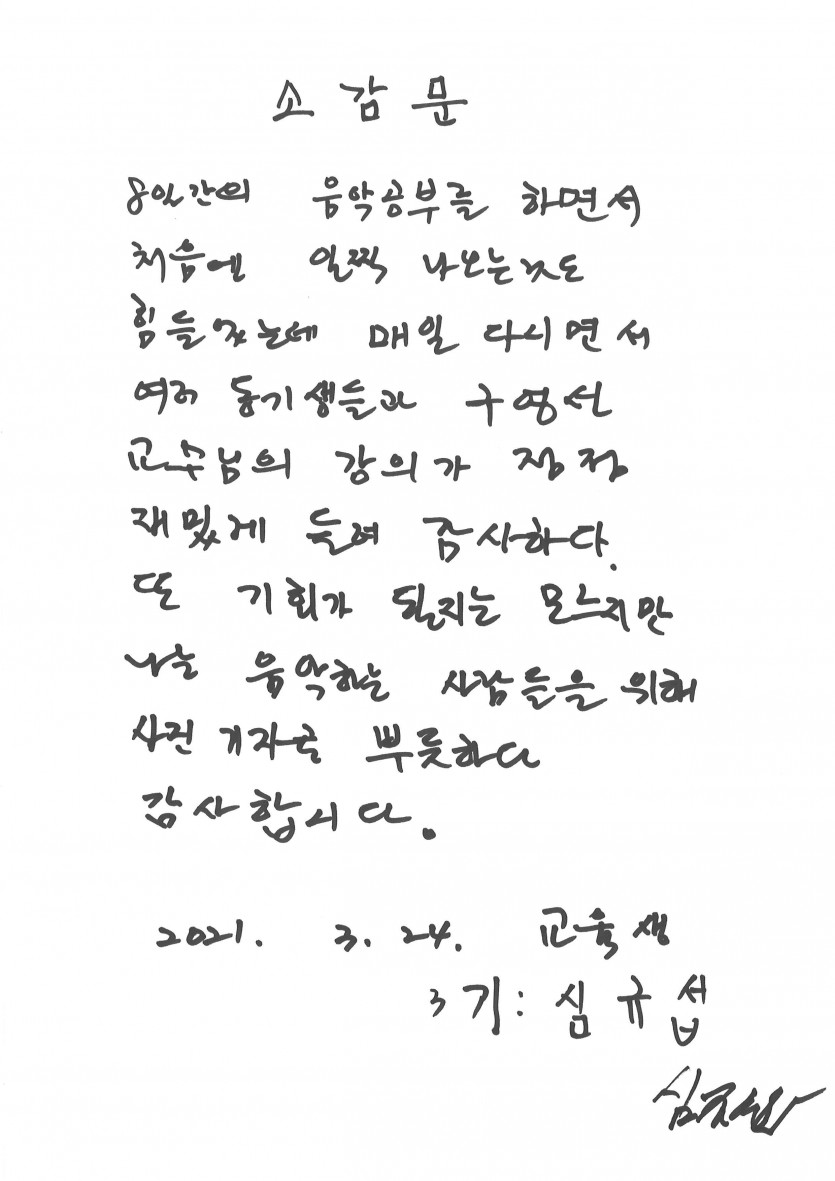 소 감 문
8일간의 음악공부를 하면서
처음엔 일찍 나오는것도
힘들었는데 매일 다시면서
여러 동기생들과 구영선
교수님의 강의가 점점
재밌게 들려 감사하다.
또 기회가 될지는 모르지만
나는 음악하는 사람들을 위해
사진 기자로 뿌듯하다
감사합니다.
2021. 3. 24. 교육생
3기: 심규섭